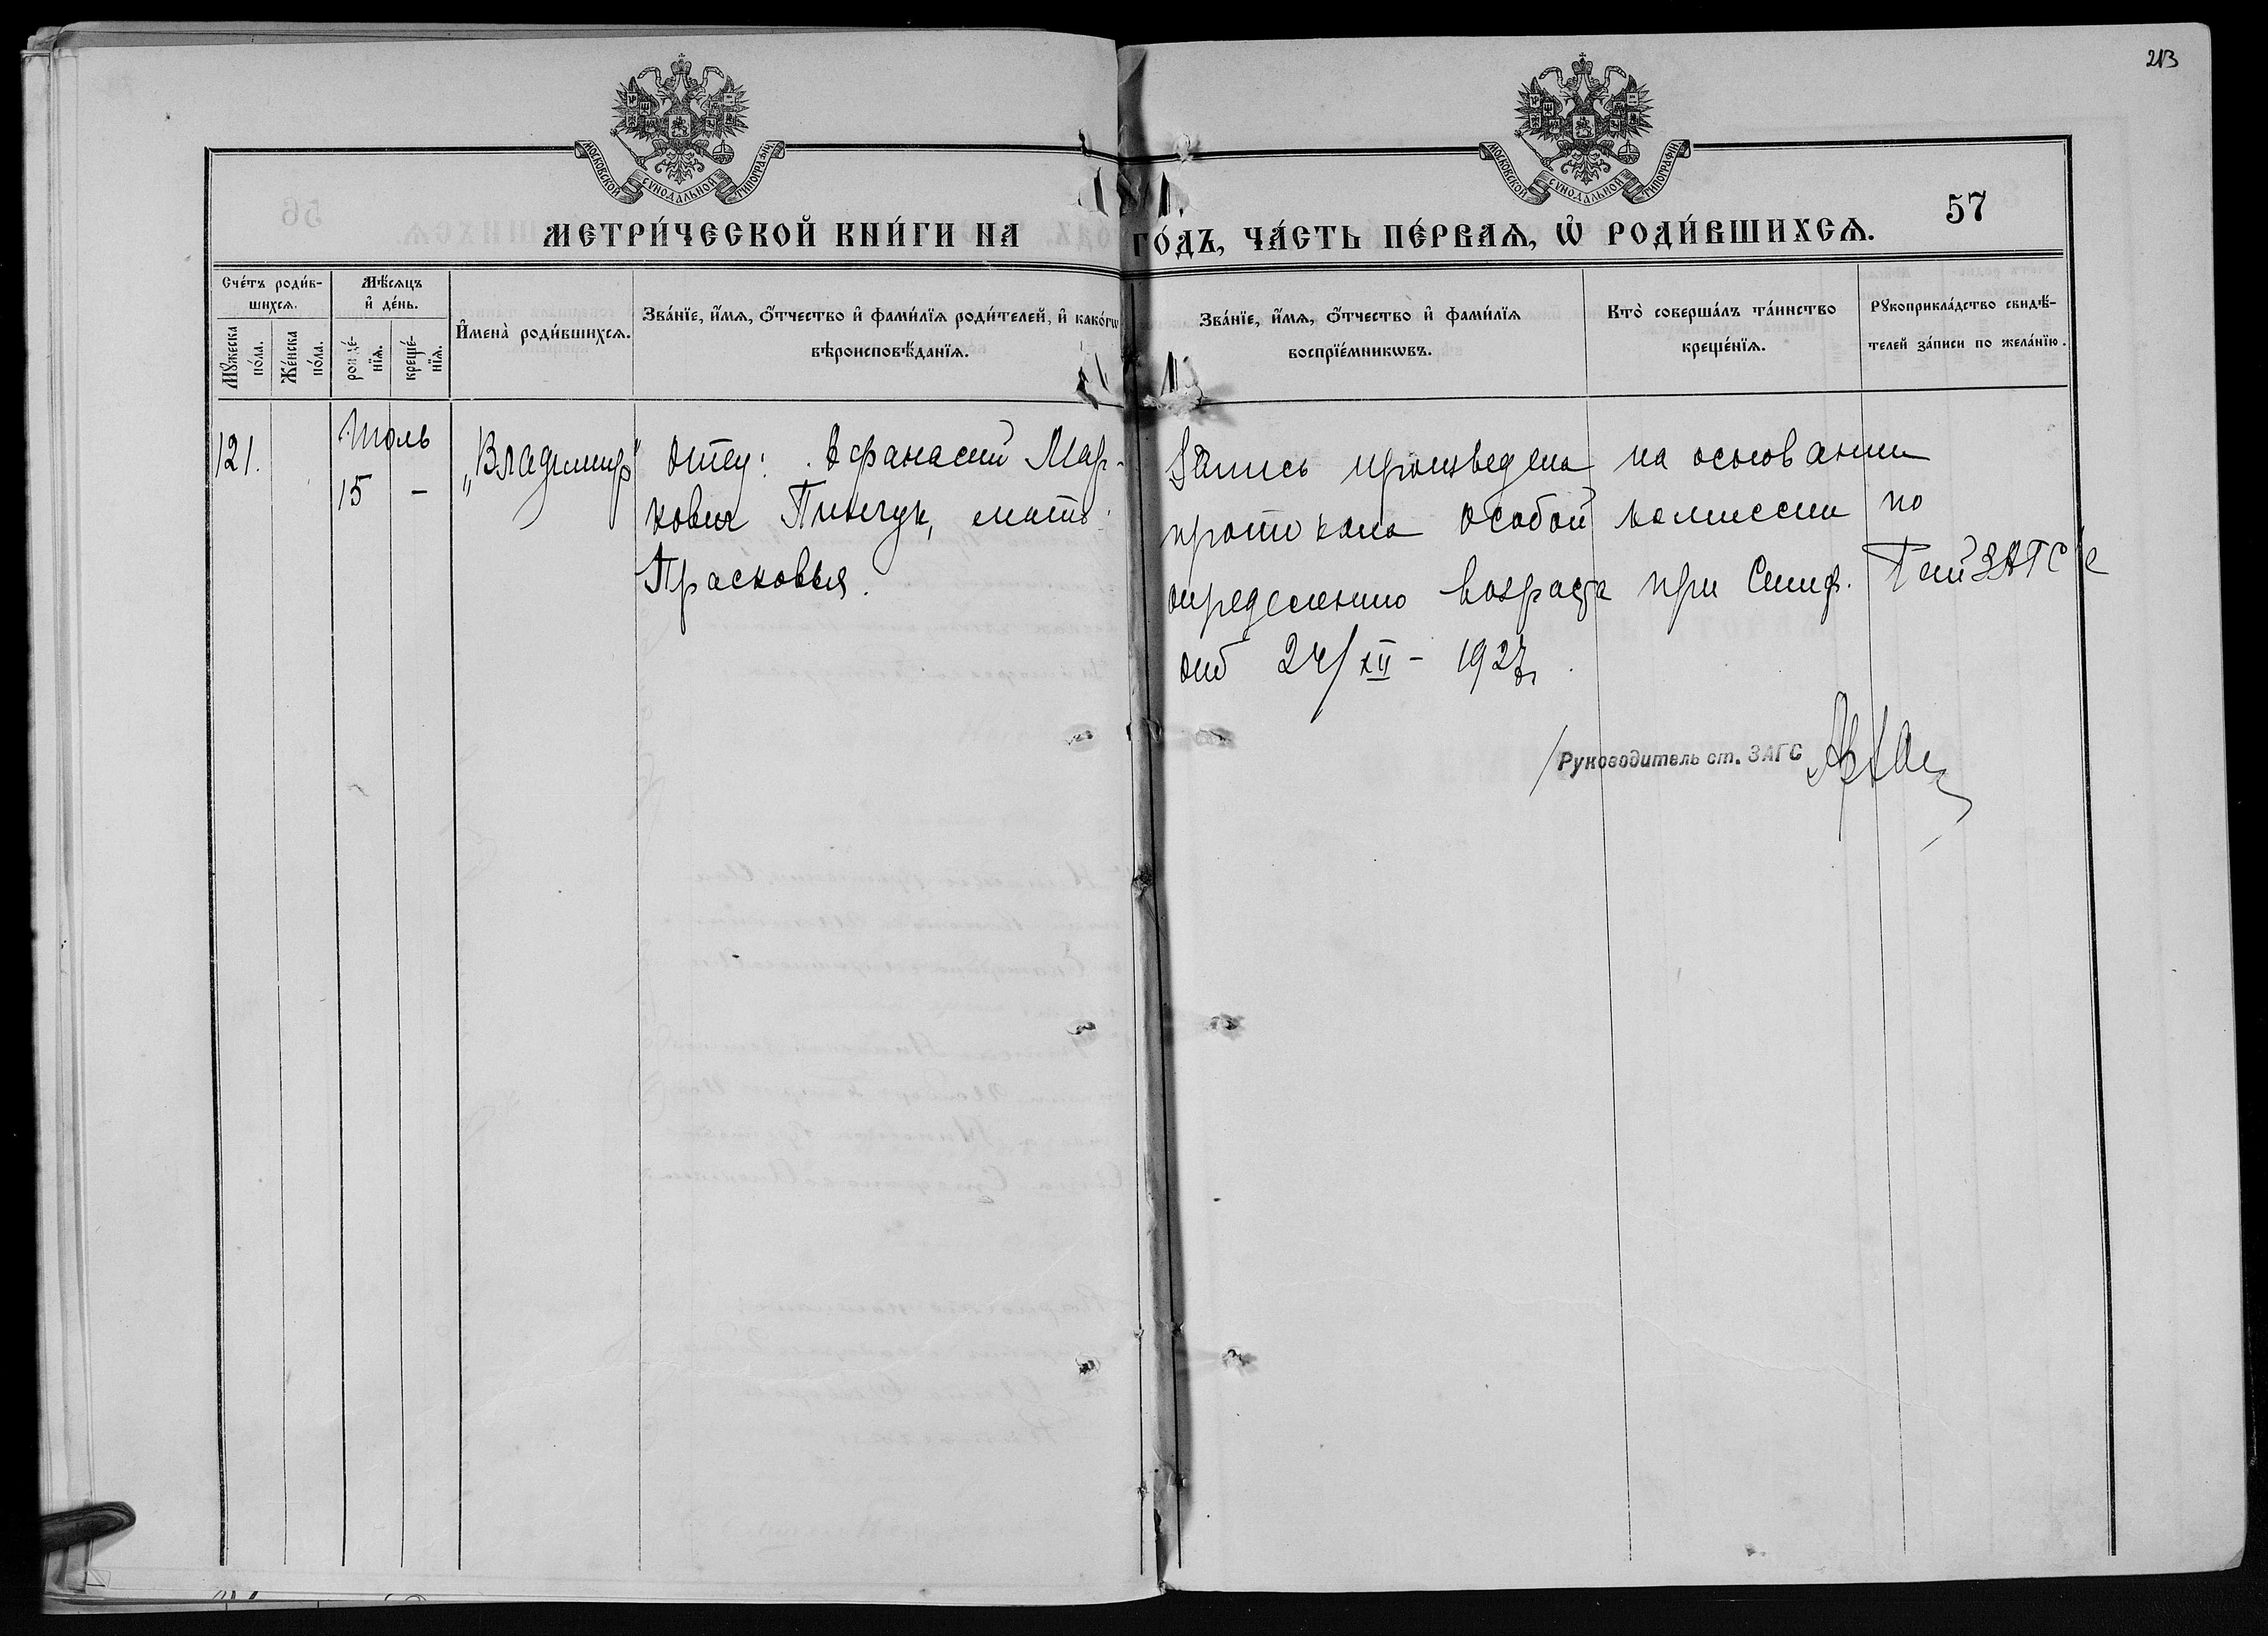 213
МОСКОВСКОЙ СѴНОДАЛЬНОЙ ТИПОГРАФІИ
МОСКОВСКОЙ СѴНОДАЛЬНОЙ ТИПОГРАФІИ
57
МЕТРИ́ЧЕСКОЙ КНИ́ГИ НА
ГО́ДЪ, ЧА́СТЬ ПЕ́РВАѦ, Ѽ РОДИ́ВШИХСѦ.
Сче́тъ роди́в-
шихсѧ.
Мꙋ́жеска
по́ла.
Же́нска
по́ла.
Мѣ́сѧцъ
и҆ де́нь.
рожде́-
нїѧ.
креще́-
нїѧ.
И҆мена̀ роди́вшихсѧ.
Зва́нїе, и҆́мѧ, ѻ҆́тчество и҆ фами́лїѧ роди́телей, и҆ како́гѡ
вѣроисповѣ́данїѧ.
Зва́нїе, и҆́мѧ, ѻ҆́тчество и҆ фами́лїѧ
воспрїе́мникѡвъ.
Кто̀ соверша́лъ та́инство
креще́нїѧ.
Рꙋкоприкла́дство свидѣ́-
телей за́писи по жела́нїю.
121.
Июль
15 -
„Владимир“
Отец: Афанасий Мар-
кович Пинчук, мать:
Прасковья.
Запись произведена на основании
протокола Особой комиссии по
определению возраста при Симф. РайЗАГС'е
от 24/XII - 1927г.
Руководитель ст. ЗАГС